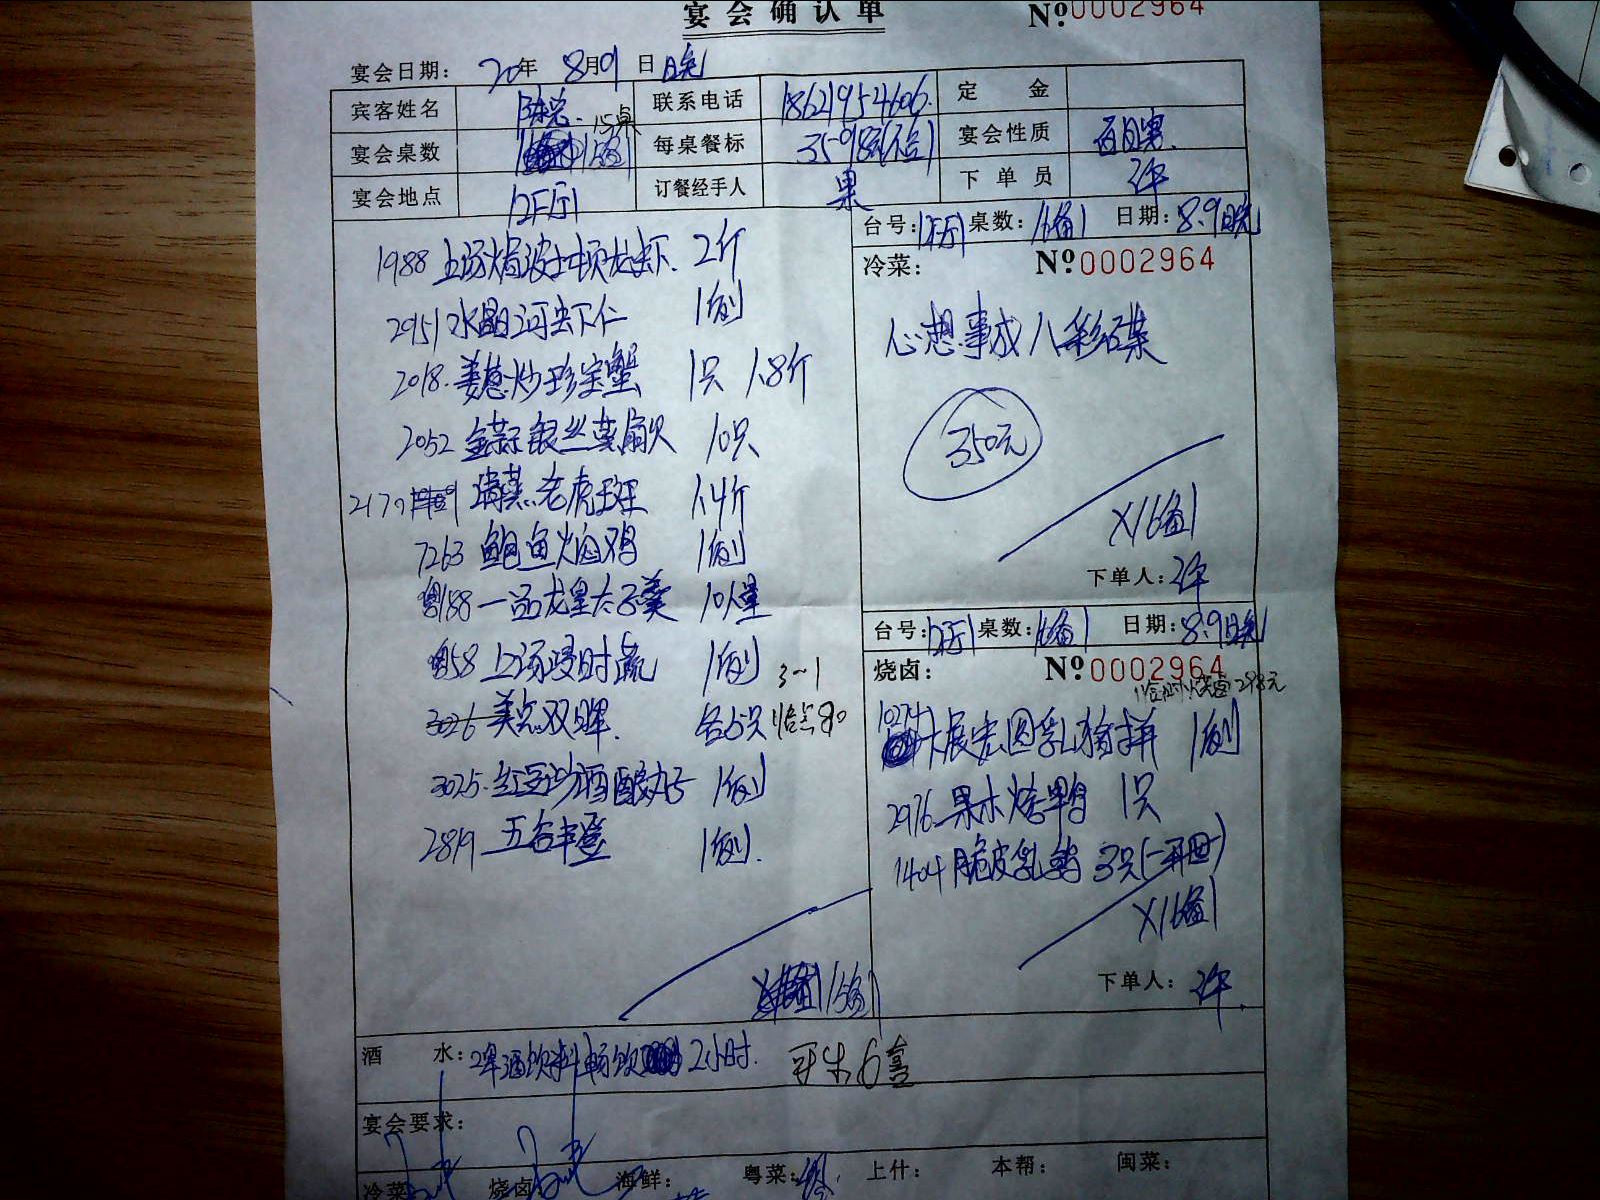 宴会确认单 Nº0002964
宴会日期: 20年 8月9日 晚
宾客姓名 陈总 15桌 联系电话 18621954606. 定金
宴会桌数 每桌餐标 宴会性质 百日宴.
宴会地点 12F厅 订餐经手人 果 下单员 许
台号: 桌数: 16备1 日期: 8.9晚
1988 上汤焗波士顿龙虾. 2斤
2951 水晶河虾仁 1例
2018. 姜葱炒珍宝蟹 1只 1.8斤
2052 金蒜银丝蒸扇贝 10只
2179 清蒸老虎斑 1.4斤
7263 鲍鱼焖鸡 1例
188 一品龙皇太子羹 10人量
58 上汤浸时蔬 1例 3~1
3026 美点双辉. 各5只
3025. 红豆沙酒酿丸子 1例
2819 五谷丰登 1例.
15备1
冷菜: Nº0002964
心想事成八彩碟
350元
X16备1
下单人: 许
台号: 桌数: 16备1 日期: 8.9晚
烧卤: Nº0002964
298元
大展宏图乳猪拼 1例
2976 果木烤鸭 1只
1404 脆皮乳鸽 3只
X16备1
下单人: 许.
酒水: 啤酒饮料畅饮 2小时.
宴会要求:
冷菜 烧卤: 海鲜: 粤菜: 上什: 本帮: 闽菜: